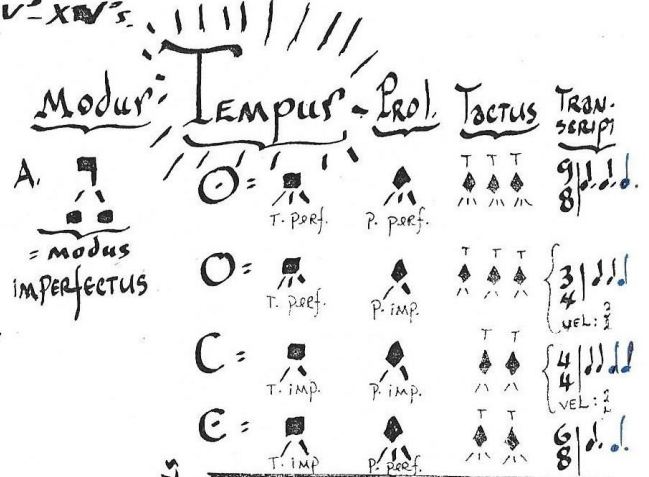 Modus: Tempus - Prol. Tactus TRAN-
SCRIPT
A.
= modus
imperfectus
O = T. perf. P. perf. T T T 9/8
O = T. perf. P. imp. T T T 3/4
vel:
C = T. imp. P. imp. T T 4/4
vel:
C = T. imp P. perf. T T 6/8